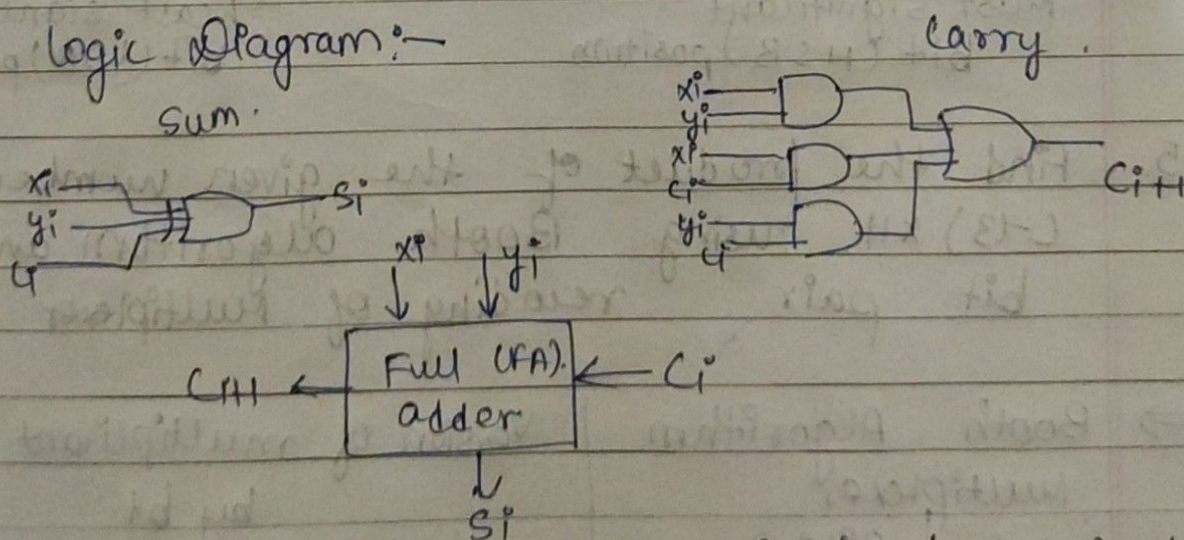 Logic Diagram:-
Carry.
Sum.
xi
yi
Ci
Si
xi
yi
xi
Ci
yi
Ci
Ci+1
xi
yi
Full (FA).
adder
Ci+1
Ci
Si